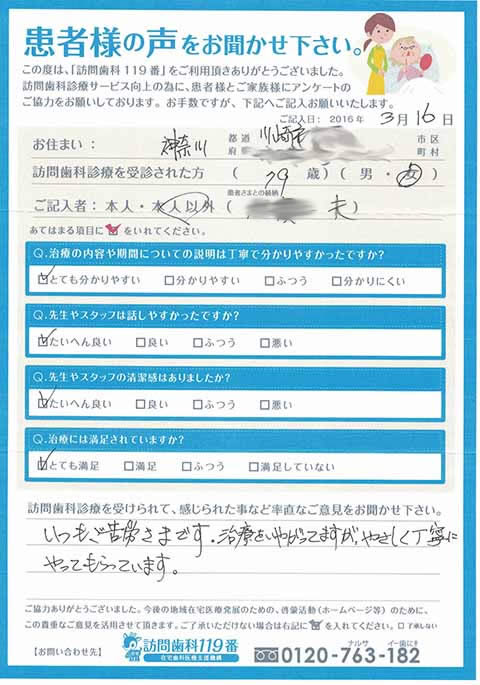 患者様の声をお聞かせ下さい。
この度は、「訪問歯科119番」をご利用頂きありがとうございました。
訪問歯科診療サービス向上の為に、患者様とご家族様にアンケートの
ご協力をお願いしております。お手数ですが、下記へご記入お願いいたします。
ご記入日: 2016年 3月 16日
お住まい: 神奈川 都道府県 川崎市 市区町村
訪問歯科診療を受診された方 ( 79 歳) ( 男 ・ 女 )
ご記入者: 本人・本人以外 ( 患者さまとの続柄 夫 )
あてはまる項目に を をいれてください。
Q.治療の内容や期間についての説明は丁寧で分かりやすかったですか?
☑とても分かりやすい □分かりやすい □ふつう □分かりにくい
Q.先生やスタッフは話しやすかったですか?
☑たいへん良い □良い □ふつう □悪い
Q.先生やスタッフの清潔感はありましたか?
☑たいへん良い □良い □ふつう □悪い
Q.治療には満足されていますか?
☑とても満足 □満足 □ふつう □満足していない
訪問歯科診療を受けられて、感じられた事など率直なご意見をお聞かせ下さい。
いつもご苦労さまです。治療をいやがってますが、やさしく丁寧に
やってもらっています。
ご協力ありがとうございました。今後の地域在宅医療発展のための、啓蒙活動(ホームページ等)のために、
この貴重なご意見を活用させて頂きます。ご了承いただけない場合は右記に を入れてください。□了承しない
【お問い合わせ先】 訪問歯科119番 在宅歯科医療支援機構 0120-763-182 ナルサ イー歯にす